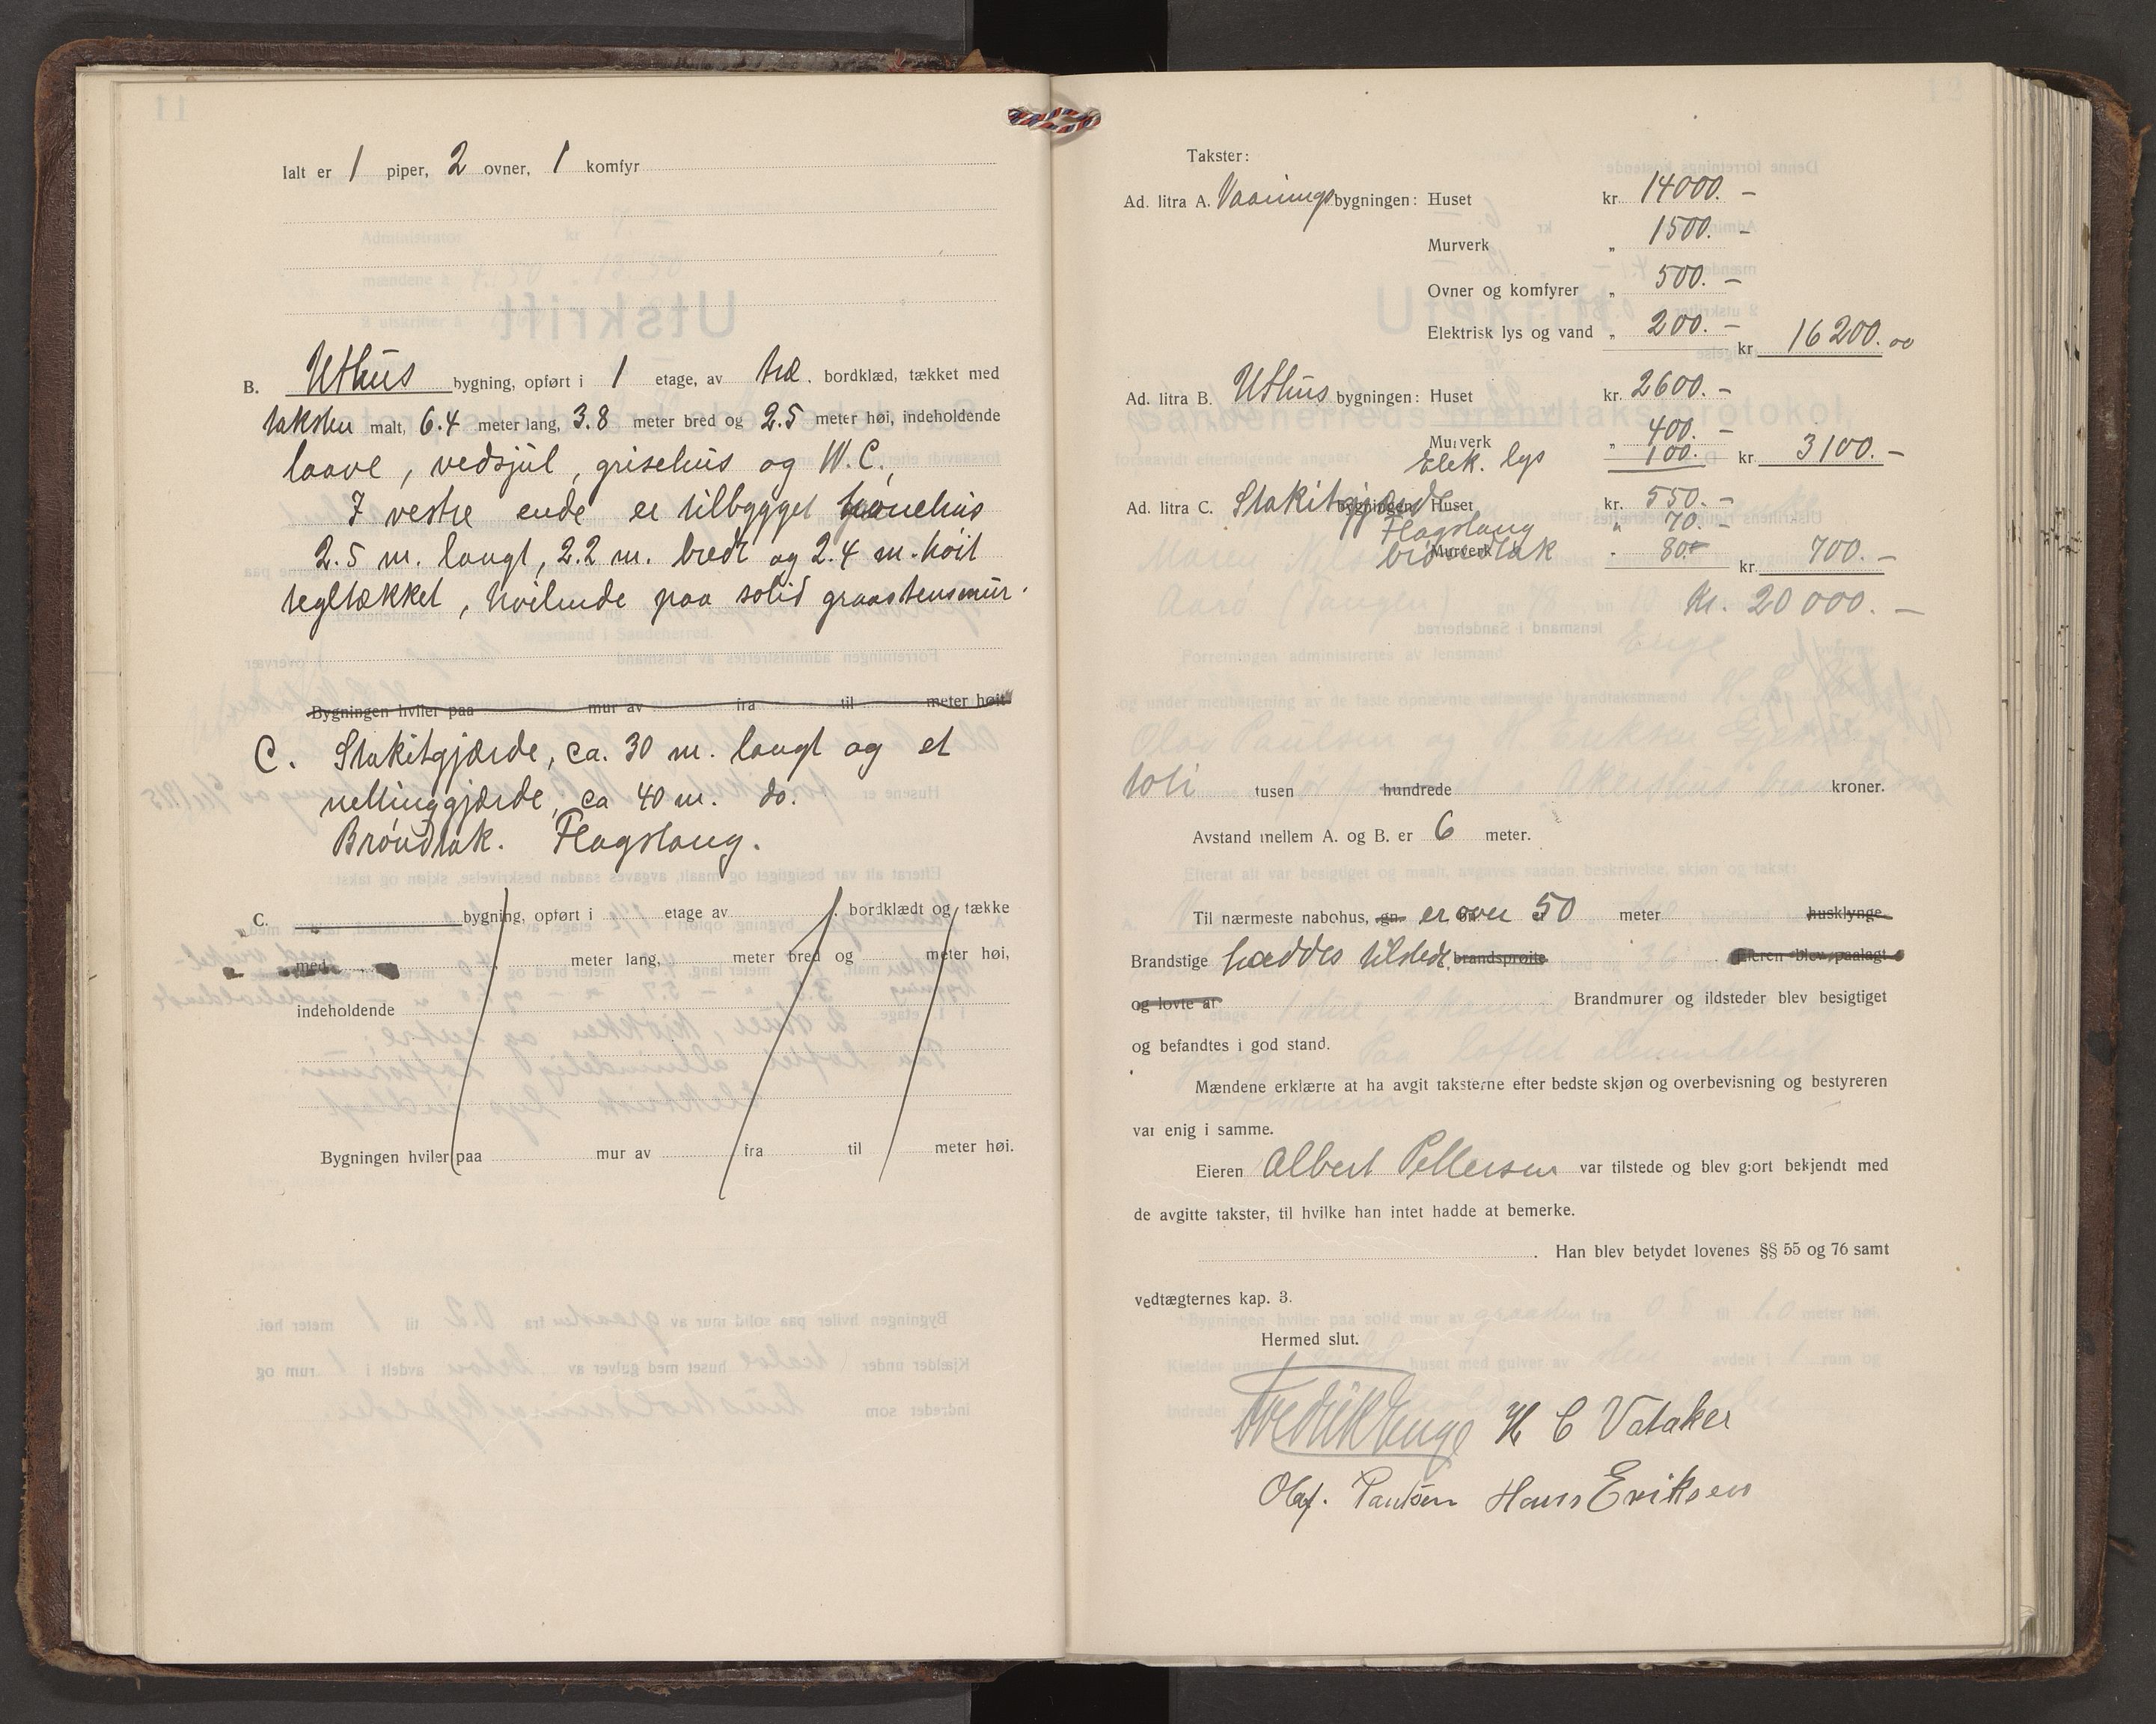 Ialt er 1 piper, 2 ovner, 1 komfyr
B. Uthus bygning, opført i 1 etage, av træ. bordklæd, tækket med
taksten malt, 6.4 meter lang, 3.8 meter bred og 2.5 meter høi, indeholdende
laave, vedsjul, grisehus og W.C.,
I vestre ende er tilbygget hønehus
2.5 m. langt, 2.2 m. bredt og 2.4 m. høit
tegltækket, hvilende paa solid graastensmur.
Bygningen hviler paa mur av fra til meter høit
C. Stakitgjærde, ca. 30 m. langt og et
nettinggjærde, ca 40 m. do.
Brøndtak. Flagstang.
C. bygning, opført i etage av bordklædt og tække
med meter lang, meter bred og meter høi,
indeholdende
Bygningen hviler paa mur av fra til meter høi.
Takster:
Ad. litra A. Vaanings bygningen: Huset kr. 14000. –
Murverk „ 1500. –
Ovner og komfyrer „ 500. –
Elektrisk lys og vand „ 200. – kr 16200. 00
Ad. litra B. Uthus bygningen: Huset kr. 2600. –
Murverk „ 400. –
Elek. lys 100. kr 3100. –
Ad. litra C. Stakitgjærde bygningen: Huset kr. 550. –
Flagstang „ 70. –
Murverk brøndtak 80. – kr. 700. –
Kr. 20000. –
toti tusen hundrede kroner.
Avstand mellem A. og B. er 6 meter.
Til nærmeste nabohus, gn. er over 50 meter husklynge
Brandstige haddes tilstede, brandsprøite Eieren blev paalagt
og lovte at Brandmurer og ildsteder blev besigtiget
og befandtes i god stand.
Mændene erklærte at ha avgit taksterne efter bedste skjøn og overbevisning og bestyreren
var enig i samme.
Eieren Albert Pettersen var tilstede og blev gjort bekjendt med
de avgitte takster, til hvilke han intet hadde at bemerke.
. Han blev betydet lovenes §§ 55 og 76 samt
vedtægternes kap. 3.
Hermed slut.
Fredrik Enge H C Vataker
Olaf. Paulsen Hans Eriksen